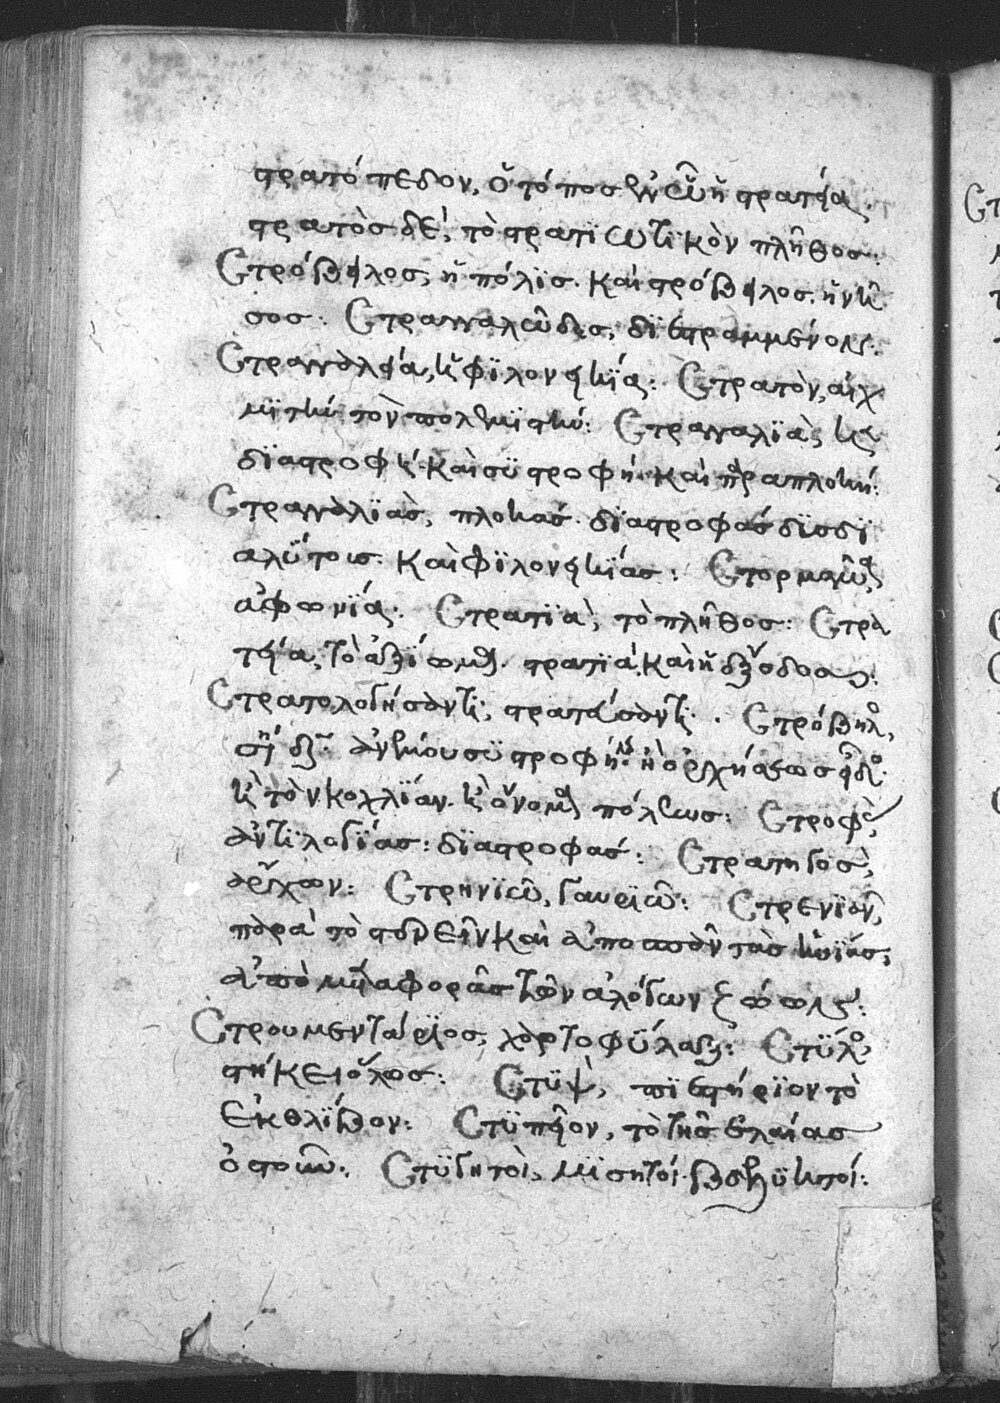 στρατόπεδον, ὁ τόπος ἐν ᾧ ἡ στρατεία.
στρατὸς δέ, τὸ στρατιωτικὸν πλῆθος:
Στρόβηλος, ἡ πόλις. καὶ στρόβηλος. ἡ νῆ
σος: Στραγγαλιώδεις, διεστραμμένους:
Στραγγαλεία, ἡ φιλονεικία: Στρατὸν, αἰχ
μιτὴν τὸν πολεμιστήν: Στραγγαλιὰ, καὶ
διαστροφή. καὶ συστροφή. καὶ παραπλοκή:
Στραγγαλιὰς, πλοκάς. διαστροφάς δισδι
αλύτοις. καὶ φιλονεικίας:
ἀφωνία: Στρατιὰ, τὸ πλῆθος: Στρα
τεία, τὸ ἀξίωμα. στρατιά. καὶ ἡ ἔξοδος:
Στρατολογήσαντι, στρατεύσαντι. Στρόβηλος,
ἀνέμου συστροφή. ἢ ὀρχήσεως εἶδος.
καὶ τὸν κοχλίαν. καὶ ὄνομα πόλεως: Στροφὰς,
ἀντιλογίας: διαστροφάς: Στρατηγὸς,
ἄρχων: Στρηνιῶ, γαυριῶ: Στρενιᾶν,
παρὰ τὸ στερεῖν καὶ ἀποσπᾶν τὰς ἡνίας,
ἀπὸ μεταφορᾶς τῶν ἀλόγων ζώων:
Στρουμεντάριος, χορτοφύλαξ: Στύλος,
στήκει ὅλως: Στύψ, πιεστήριον τὸ
ἐκθλίβον: Στυπεῖον, τὸ τῆς ἐλαίας
ὀστοῦν: Στυγητοὶ, μισητοί. βδελυκτοί: